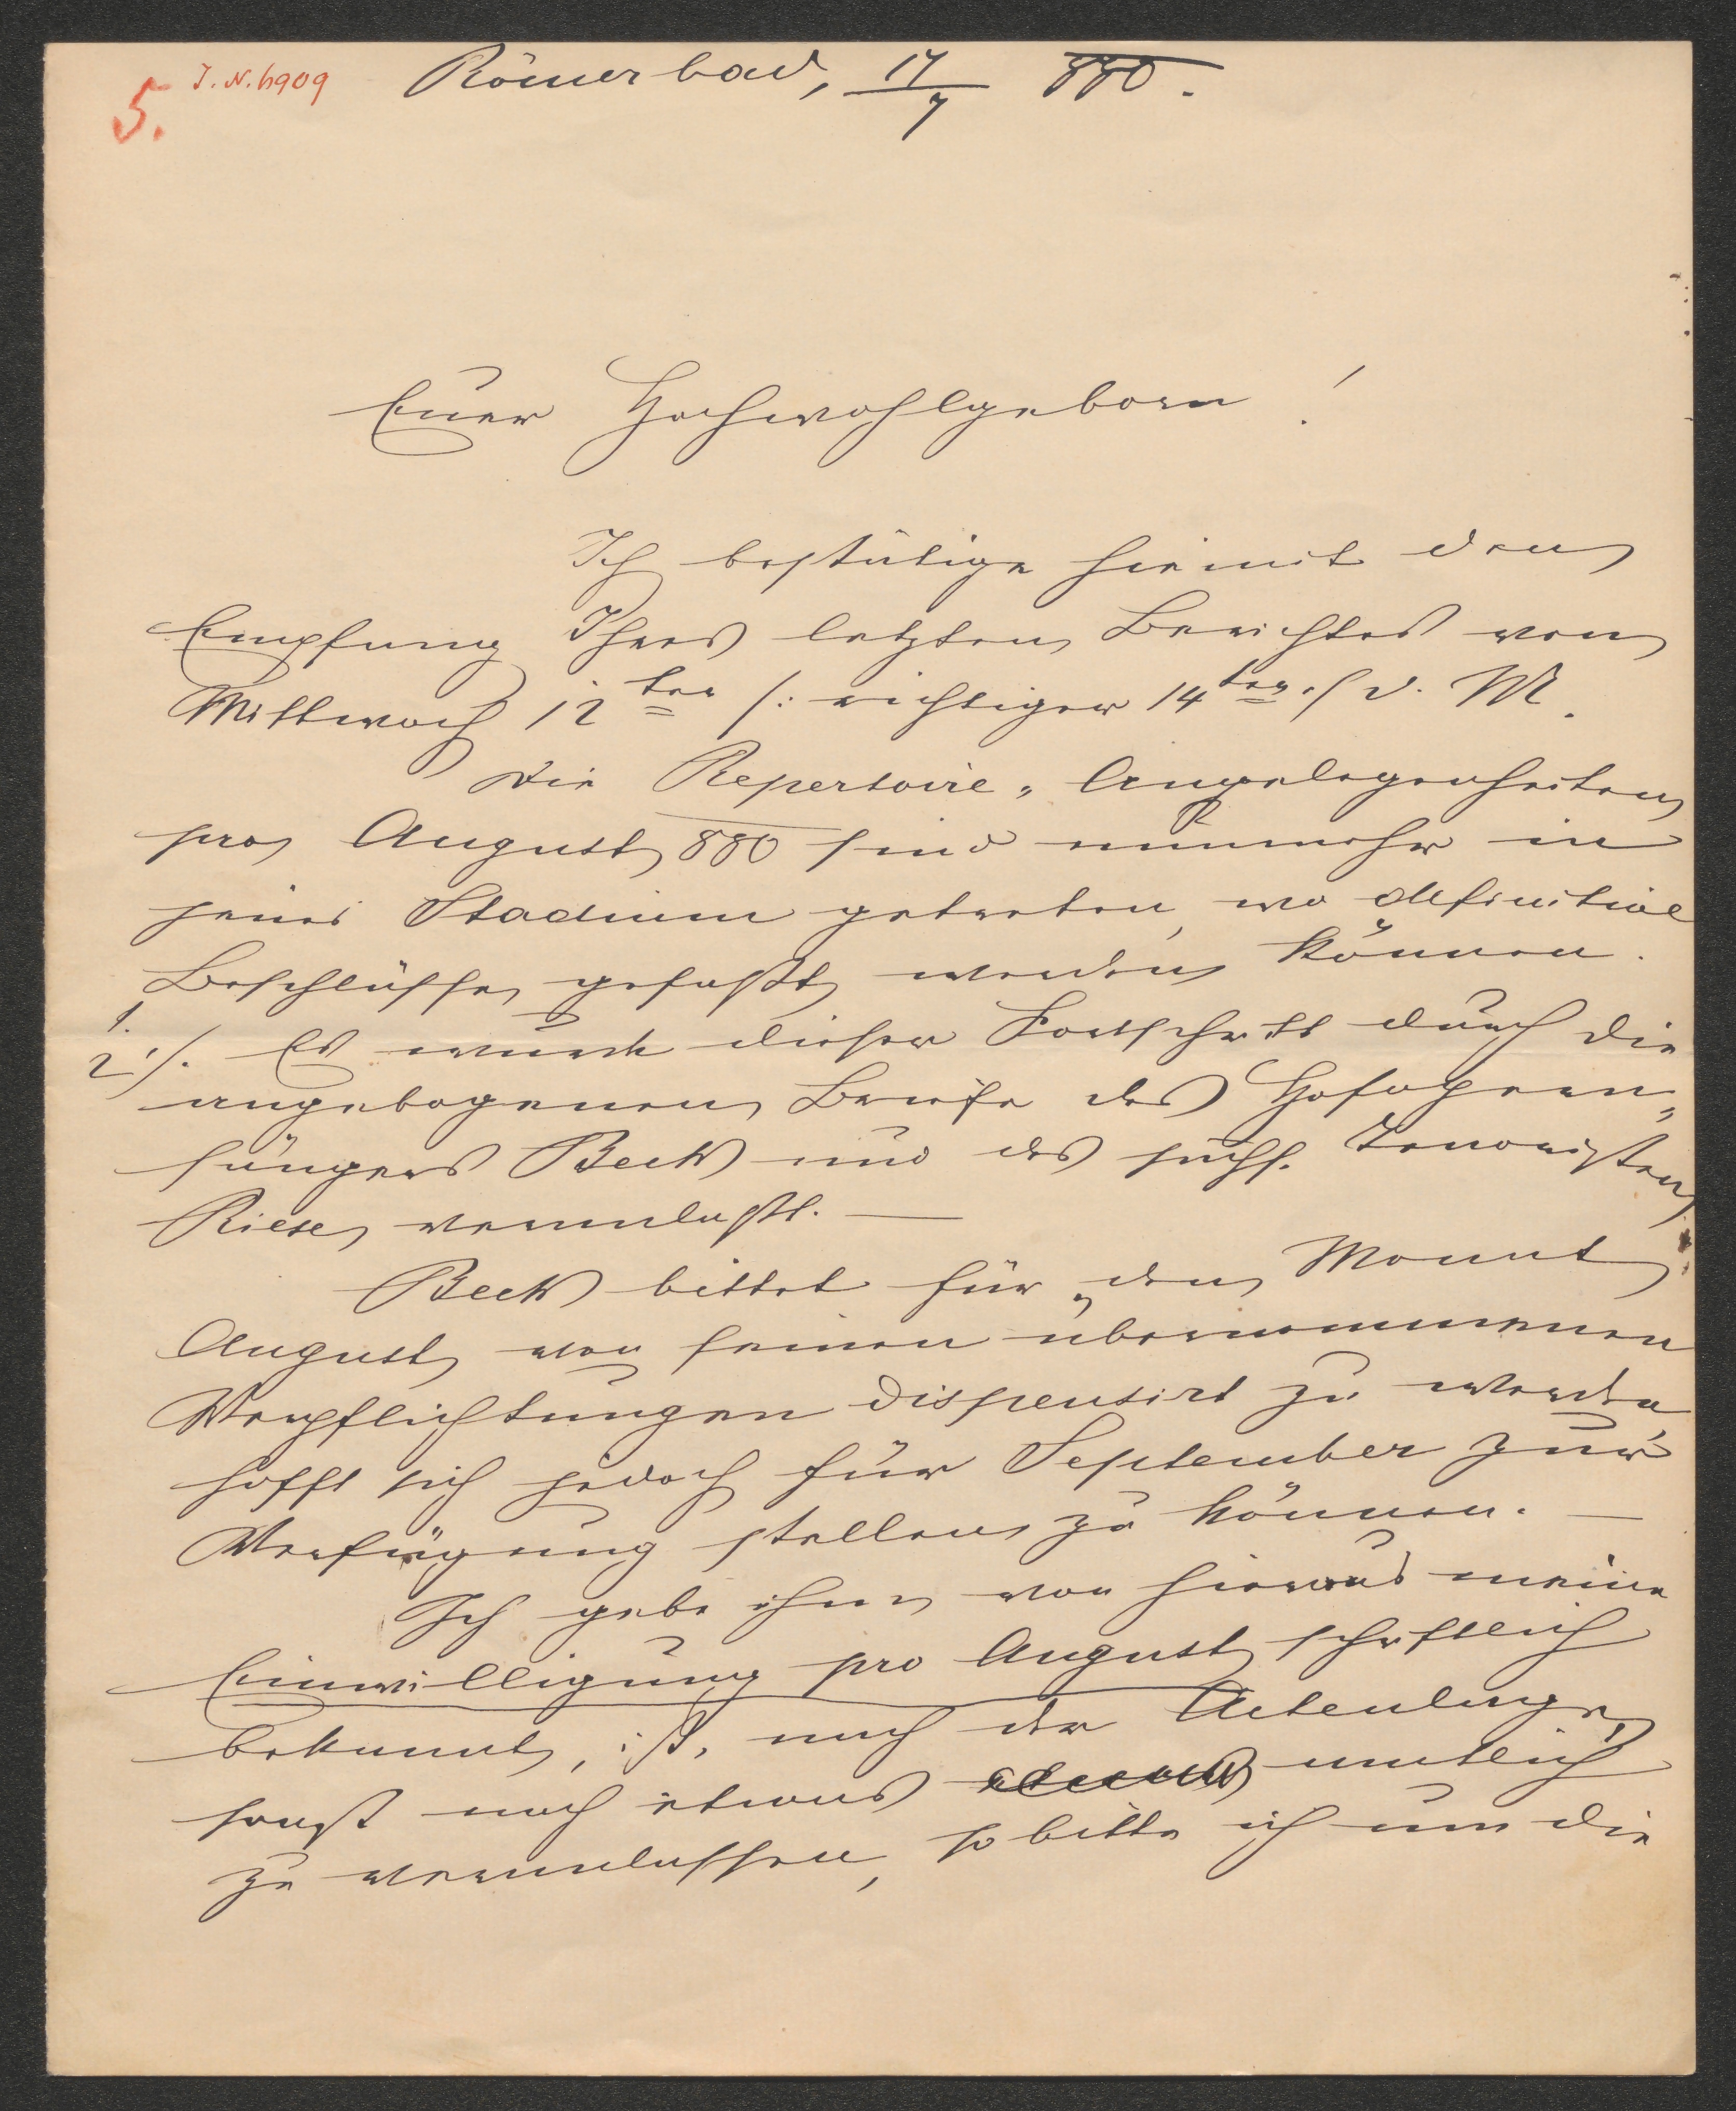 5. J.N. 6909
Römerbad, 17/7 880.
Euer Hochwohlgeborn!
Ich bestätige hiemit den
Empfang Ihres letzten Berichtes vom
Mittwoch 12ten /: richtiger 14ten :/ d. M.
Die Repertoire-Angelegenheiten
pro August 880 sind nunmehr in
jenes Stadium getreten, wo definitive
Beschlüsse gefaßt werden können.
1.
2 ·/. Es wurde dieser Fortschritt durch die
angebogenen Briefe des Hofopern-
sängers Beck und des sächs. Tenoristen
Riese veranlaßt. —
Beck bittet für den Monat
August von seinen übernommenen
Verpflichtungen dispensirt zu werden
hofft sich jedoch für September zur
Verfügung stellen zu können. —
Ich gebe ihm von hieraus meine
Einwilligung pro August schriftlich
bekannt, ist, nach der Actenlage,
sonst noch etwas amtlich
zu veranlassen, so bitte ich um die